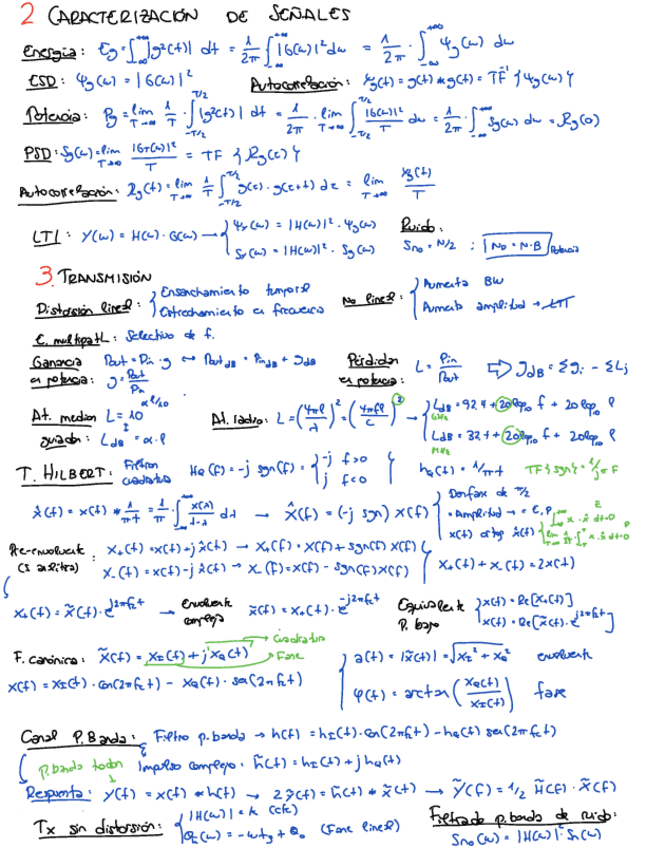 2 CARACTERIZACIÓN DE SEÑALES
Energía: Eg = ∫_{-∞}^{+∞} |g²(t)| dt = 1/2π ∫_{-∞}^{∞} |G(ω)|² dω = 1/2π · ∫_{-∞}^{+∞} Ψg(ω) dω
ESD: Ψg(ω) = |G(ω)|² Autocorrelación: Ψg(t) = g(t) * g(t) = TF⁻¹ {Ψg(ω)}
Potencia: Pg = lim_{T→∞} 1/T · ∫_{-T/2}^{T/2} |g²(t)| dt = 1/2π · lim_{T→∞} ∫_{-T/2}^{T/2} |G(ω)|²/T dω = 1/2π · ∫_{-∞}^{∞} Sg(ω) dω = Rg(0)
PSD: Sg(ω) = lim_{T→∞} |GT(ω)|²/T = TF {Rg(z)}
Autocorrelación: Rg(t) = lim_{T→∞} 1/T ∫_{-T/2}^{T/2} g(z) · g(z+t) dz = lim_{T→∞} Ψg(t)/T
LTI: Y(ω) = H(ω) · G(ω) → { Ψy(ω) = |H(ω)|² · Ψg(ω) Ruido:
Sy(ω) = |H(ω)|² · Sg(ω) Sno = N/2 ; No = N·B Potencia
3. TRANSMISIÓN
Distorsión lineal: { Ensanchamiento temporal No lineal: { Aumenta BW
Estrechamiento en frecuencia Aumenta amplitud → LTI
C. multipath: Selectivo de f.
Ganancia en potencia: Pout = Pin · g ↔ PoutdB = PindB + gdB Pérdidas en potencia: L = Pin/Pout ⇨ gdB = Σgi - ΣLj
g = Pout/Pin
At. medios guiados: L = 10^{αl/10} At. radio: L = (4πl/λ)² = (4πfl/c)² → { LdB = 92,4 + 20log₁₀ f + 20log₁₀ l
GHz
LdB = α·l LdB = 32,4 + 20log₁₀ f + 20log₁₀ l
MHz
T. HILBERT: Filtro cuadratura HQ(f) = -j sgn(f) = { -j f>0
j f<0 } hQ(t) = 1/πt TF{sgn} = 1/jπF
x̂(t) = x(t) * 1/πt = 1/π ∫_{-∞}^{+∞} x(λ)/(t-λ) dλ → X̂(f) = (-j sgn) X(f) { Desfase de π/2
• Amplitud → = E, P
x(t) ortog x̂(t) { ∫_{-∞}^{∞} x · x̂ dt=0 E
lim_{T→∞} 1/2T · ∫_{-T}^{T} x · x̂ dt=0 P
Pre-envolvente (s. analítica): x₊(t) = x(t) + j x̂(t) → X₊(f) = X(f) + sgn(f) X(f) }
x₋(t) = x(t) - j x̂(t) → X₋(f) = X(f) - sgn(f) X(f) } x₊(t) + x₋(t) = 2x(t)
x₊(t) = x̃(t) · e^{j2πfct} → Envolvente compleja x̃(t) = x₊(t) · e^{-j2πfct} Equivalente P. bajo { x(t) = Re[x₊(t)]
x(t) = Re[x̃(t) · e^{j2πfct}]
F. canónica: x̃(t) = xI(t) + j xQ(t) Cuadratura
Fase
x(t) = xI(t) · cos(2πfct) - xQ(t) · sen(2πfct)
{ a(t) = |x̃(t)| = √(xI² + xQ²) envolvente
φ(t) = arctan (xQ(t)/xI(t)) fase
Canal P. Banda: Filtro p. banda → h(t) = hI(t) · cos(2πfct) - hQ(t) sen(2πfct)
P. banda todos Impulso complejo: h̃(t) = hI(t) + j hQ(t)
Respuesta: y(t) = x(t) * h(t) → 2ỹ(t) = h̃(t) * x̃(t) → Ỹ(f) = 1/2 H̃(f) · X̃(f)
Tx sin distorsión: { |H(ω)| = k (cte) Filtrado p. banda de ruido:
θℓ(ω) = -ωtg + θ₀ (Fase lineal) Sno(ω) = |H(ω)|² Sn(ω)